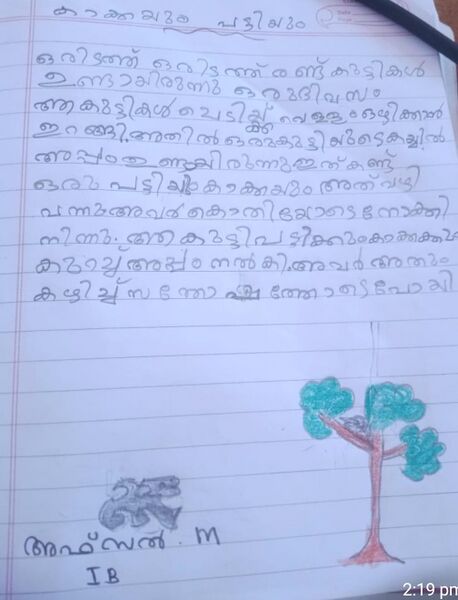 കാക്കയും പട്ടിയും
ഒരിടത്ത് ഒരിടത്ത് രണ്ട് കുട്ടികൾ
ഉണ്ടായിരുന്നു ഒരുദിവസം
ആ കുട്ടികൾ ചെടിയ്ക്ക് വെള്ളംഒഴിക്കാൻ
ഇറങ്ങി.അതിൽ ഒരുകുട്ടിയുടെകയ്യിൽ
അപ്പംഉണ്ടായിരുന്നുഇത്കണ്ട്
ഒരു പട്ടിയുംകാക്കയും അത് വഴി
വന്നുഅവർ കൊതിയോടെനോക്കി
നിന്നു. ആ കുട്ടിപട്ടിക്കുംകാക്കക്കും
കുറച്ച് അപ്പം നൽകി.അവർ അതും
കഴിച്ച് സന്തോഷത്തോടെപോയി
അഫ്സൽ. M
I B
2:19 pm